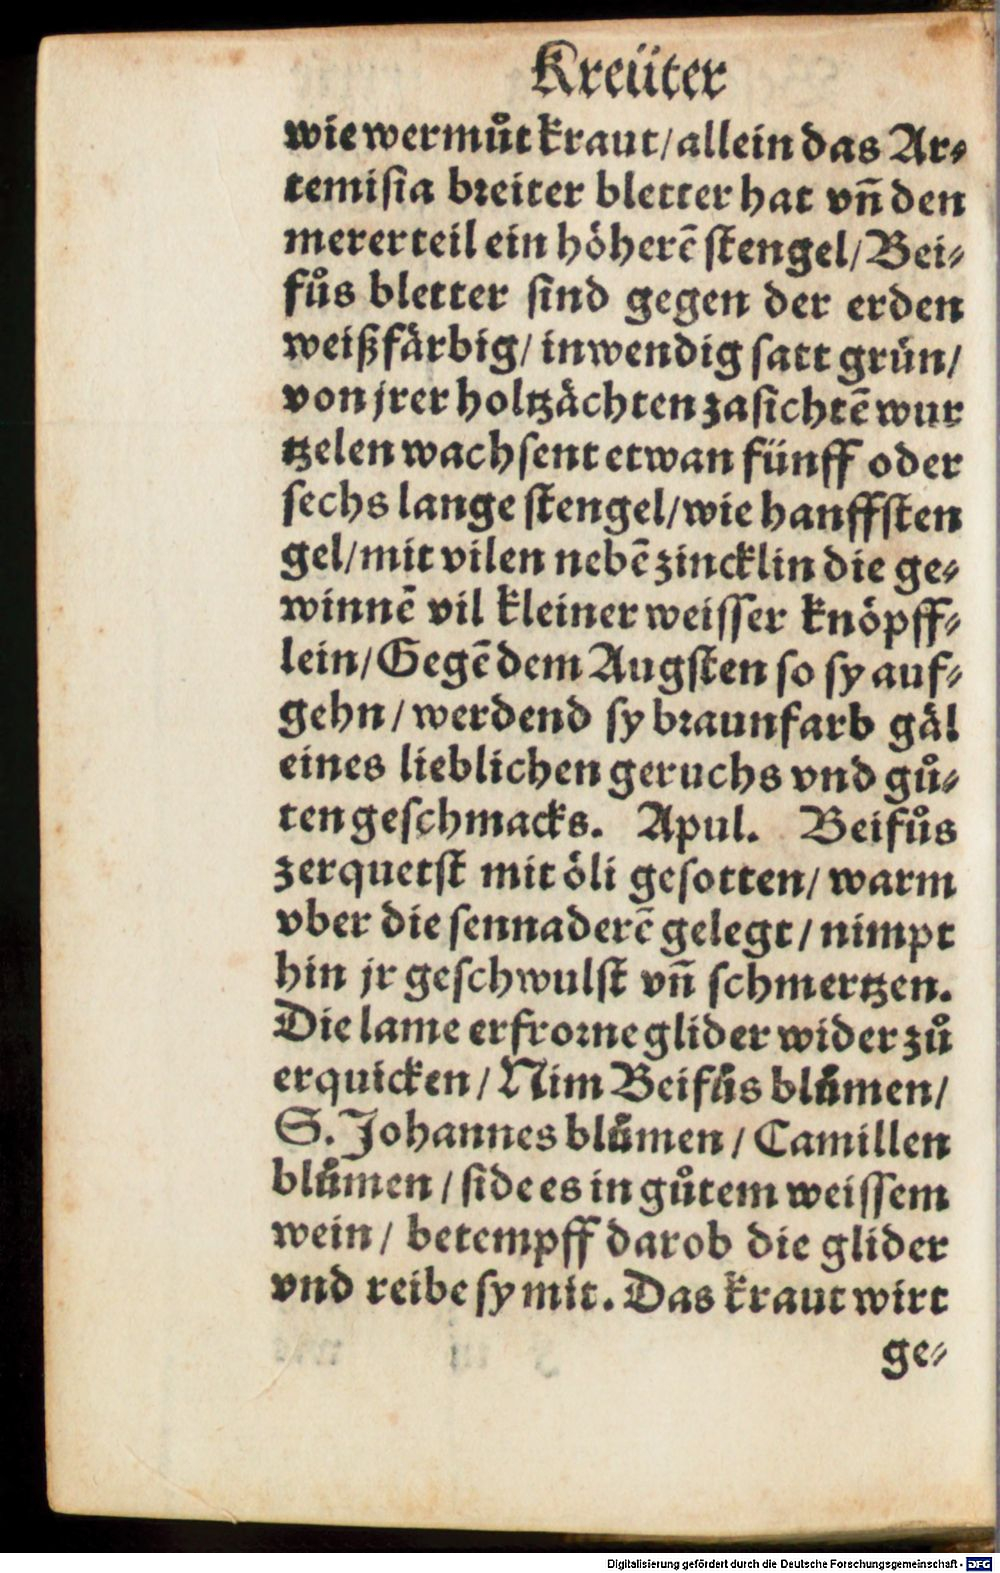 Kreüter
wie wermůt kraut/ allein das Ar⸗
temiſia breiter bletter hat vñ den
merer teil ein höherē ſtengel/ Bei⸗
fůs bletter ſind gegen der erden
weißfärbig/ inwendig ſatt grün/
von jrer holtzächten zaſichtē wur
tzelen wachſent etwan fünff oder
ſechs lange ſtengel/ wie hanffſten
gel/ mit vilen nebē zincklin die ge⸗
winnē vil kleiner weiſſer knöpff⸗
lein/ Gegē dem Augſten ſo ſy auf⸗
gehn/ werdend ſy braunfarb gäl
eines lieblichen geruchs vnd gů⸗
ten geſchmacks. Apul. Beifůs
zerquetſt mit öli geſotten/ warm
vber die ſennaderē gelegt/ nimpt
hin jr geſchwulſt vñ ſchmertzen.
Die lame erfrorne glider wider zů
erquicken/ Nim Beifůs blůmen/
S. Johannes blůmen/ Camillen
blůmen/ ſide es in gůtem weiſſem
wein/ betempff darob die glider
vnd reibe ſy mit. Das kraut wirt
ge⸗
Digitalisierung gefördert durch die Deutsche Forschungsgemeinschaft - DFG